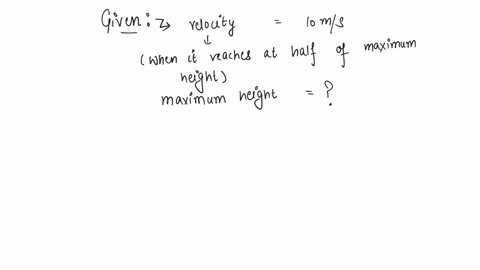 Given :→ velocity = 10 m/s
↓
(when it reaches at half of maximum
height)
maximum height = ?